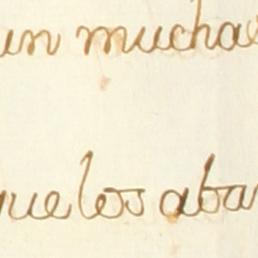 un muchas
que los aba